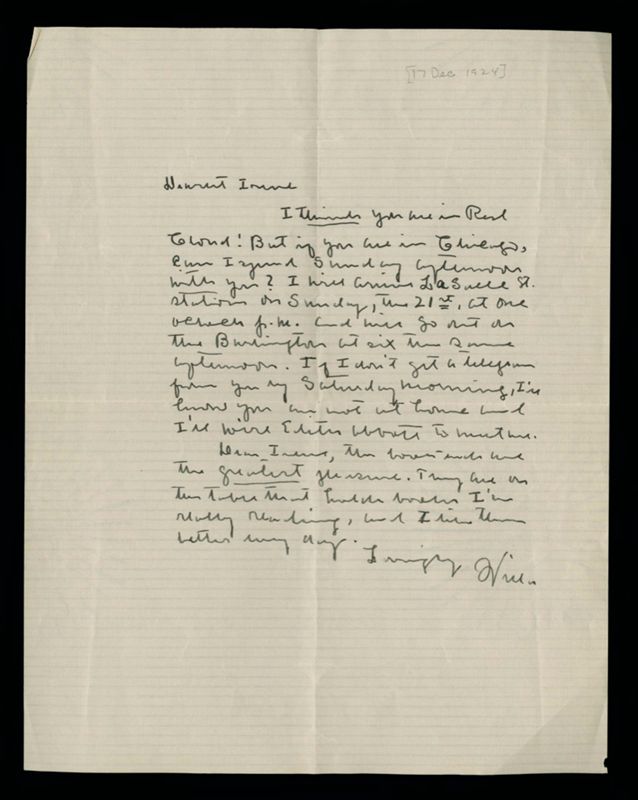 [17 Dec 1924]
Dearest Irene
I think you are in Red
Cloud! But if you are in Chicago,
can I spend Sunday afternoon
with you? I will arrive LaSalle St.
station on Sunday, the 21st, at one
o'clock p.m. and will go out on
the Burlington at six the same
afternoon. If I don't get a telegram
from you by Saturday morning, I'll
know you are not at home and
I'll wire Edith Abbott to meet me.
Dear Irene, the book-ends are
the greatest pleasure. They are on
the table that holds books I'm
really reading, and I like them
better every day.
Lovingly Willa